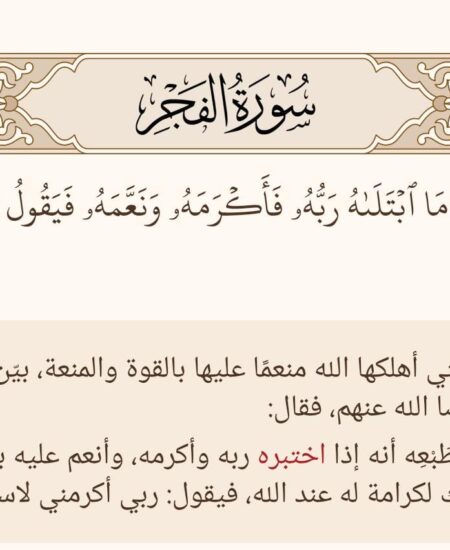 سُورَةُ الفَجْرِ
مَا ٱبْتَلَىٰهُ رَبُّهُۥ فَأَكْرَمَهُۥ وَنَعَّمَهُۥ فَيَقُولُ
أهلكها الله منعمًا عليها بالقوة والمنعة، بيّن
الله عنهم، فقال:
أنه إذا اختبره ربه وأكرمه، وأنعم عليه
لكرامة له عند الله، فيقول: ربي أكرمني